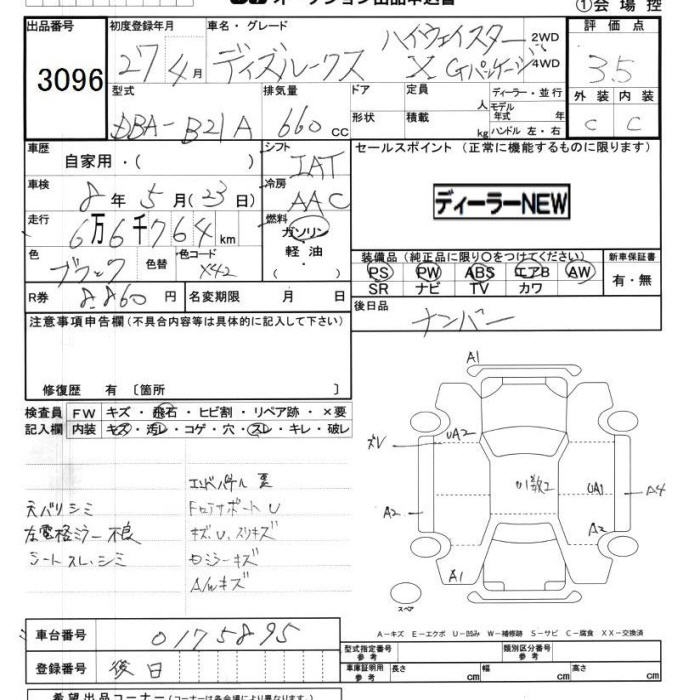 オークション出品申込書
①会場控
出品番号
3096
初度登録年月
27年4月
車名・グレード
デイズルークス ハイウェイスター
X Gパッケージ
2WD
4WD
評価点
3.5
外装 内装
C C
型式
DBA-B21A
排気量
660 cc
ドア
形状
定員 人
積載 kg
ディーラー・並行
モデル年式 年
ハンドル 左・右
車歴
自家用・( )
シフト
IAT
セールスポイント (正常に機能するものに限ります)
ディーラーNEW
車検
8年5月(23日)
冷房
AAC
走行
6万6千764km
燃料
ガソリン
軽油・
( )
色
ブラック
色替
色コード
X42
装備品(純正品に限り〇をつけてください)
PS PW ABS エアB AW
SR ナビ TV カワ
新車保証書
有・無
R券
8,860円
名変期限 月 日
後日品
ナンバー
注意事項申告欄(不具合内容等は具体的に記入して下さい)
修復歴 有 〔箇所 〕
検査員記入欄
FW キズ・飛石・ヒビ割・リペア跡・×要
内装 キズ・汚レ・コゲ・穴・スレ・キレ・破レ
天バリシミ
左電格ミラー不良
シートスレ、シミ
キズ、U、スリキズ
ロミラーキズ
A/Wキズ
A1
UA2
UA1
A4
A2
A2
A1
スペア
A-キズ E-エクボ U-凹み W-補修跡 S-サビ C-腐食 XX-交換済
車台番号
0175895
登録番号
後日
型式指定番号 参考
類別区分番号 参考
車庫証明用 参考
長さ cm
幅 cm
高さ cm
希望出品コーナー(コーナーは各会場により異なります)